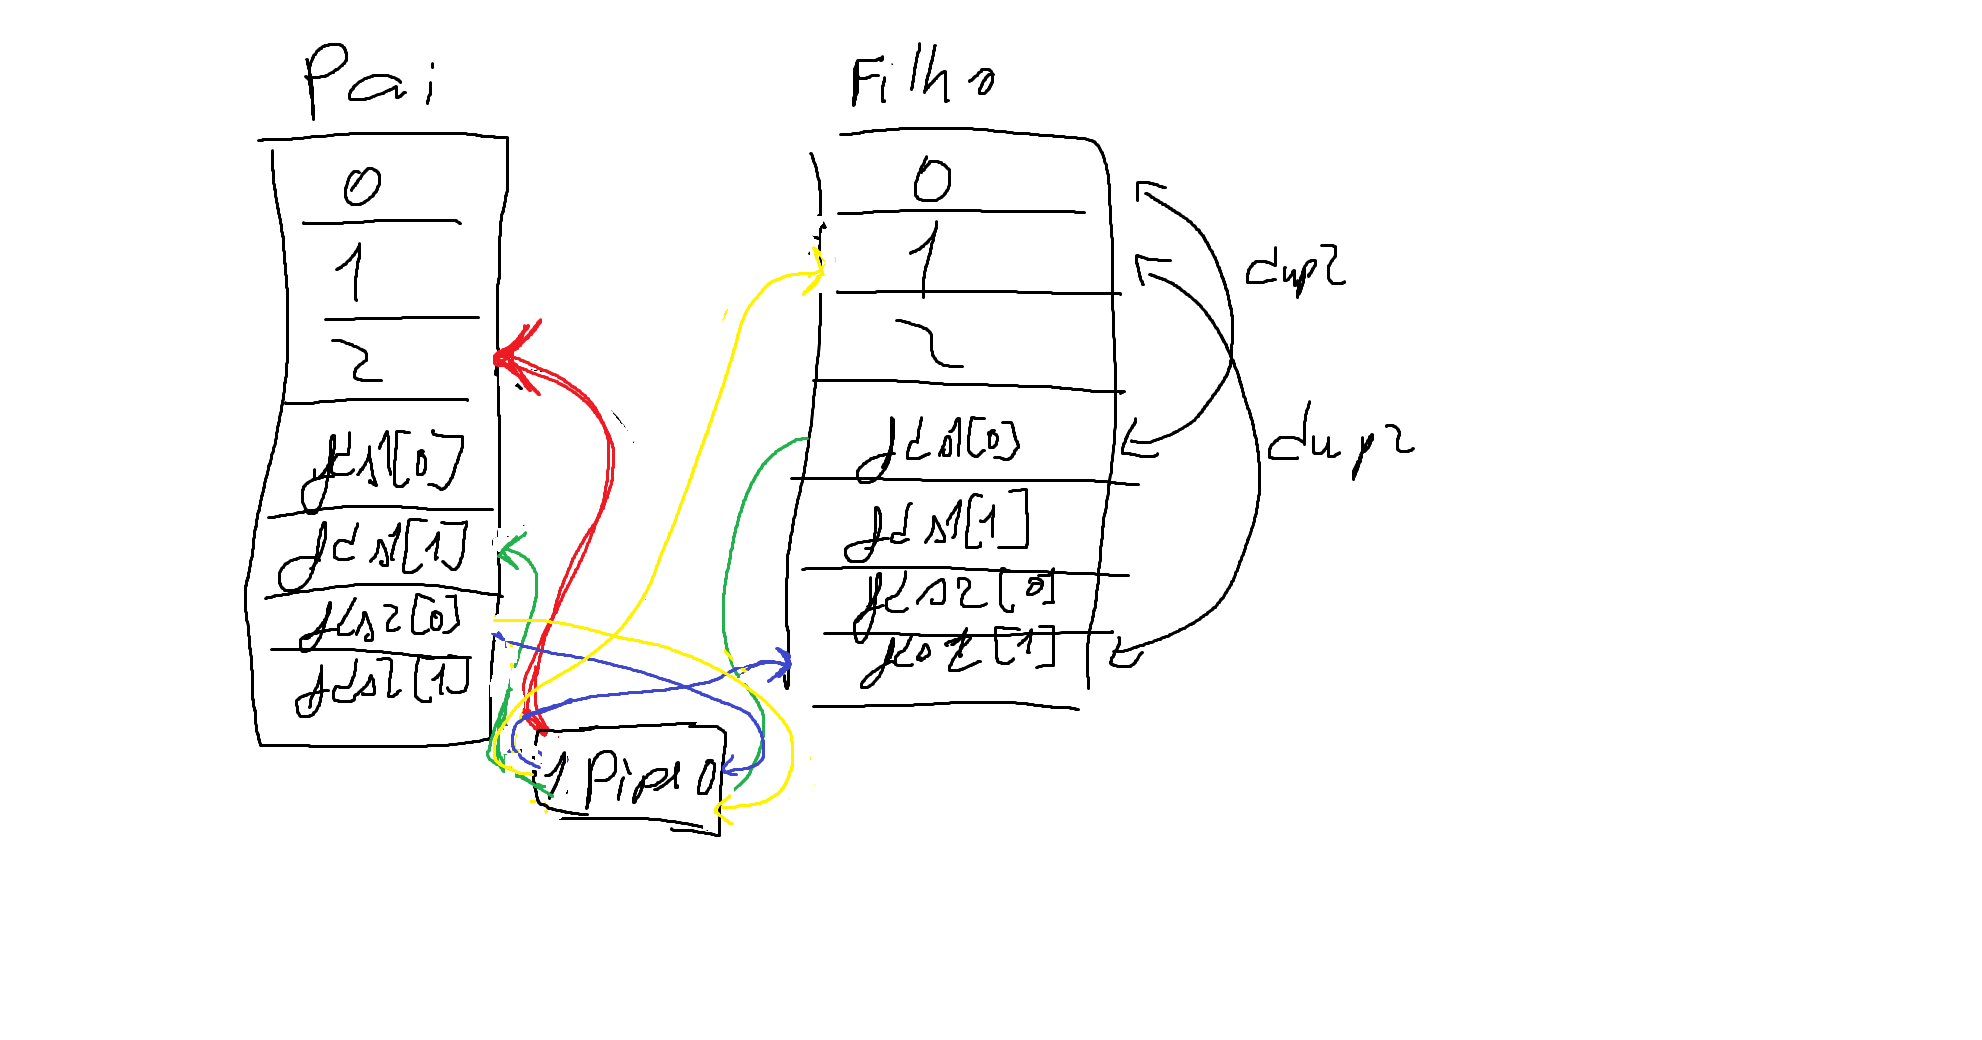 Pai
0
1
2
fds1[0]
fds1[1]
fds2[0]
fds2[1]
Filho
0
1
2
fds1[0]
fds1[1]
fds2[0]
fds2[1]
dup2
dup2
1 Pipe 0